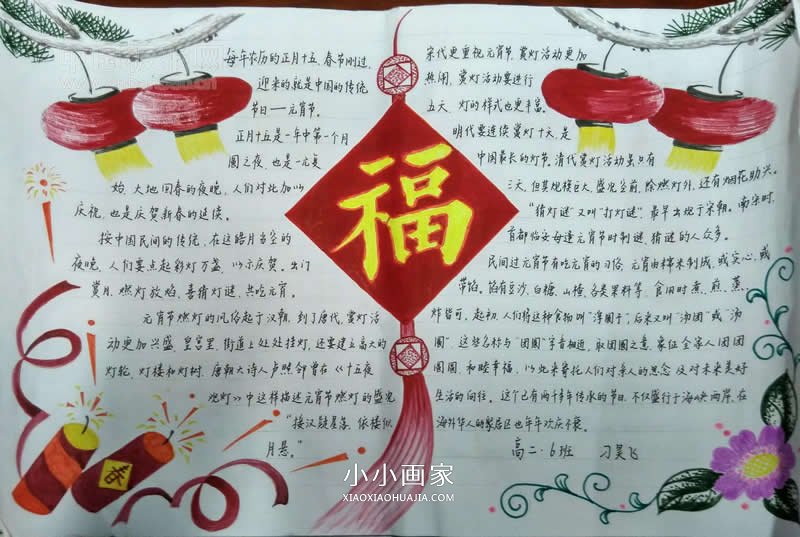 每年农历的正月十五，春节刚过，
迎来的就是中国的传统
节日——元宵节。
正月十五是一年中第一个月
圆之夜，也是一元复
始，大地回春的夜晚，人们对此加以
庆祝，也是庆贺新春的延续。
按中国民间的传统，在这皓月当空的
夜晚，人们要点起彩灯万盏，以示庆贺。出门
赏月、燃灯放焰、喜猜灯谜、共吃元宵。
元宵节燃灯的风俗起于汉朝，到了唐代，赏灯活
动更加兴盛，皇宫里、街道上处处挂灯，还要建立高大的
灯轮、灯楼和灯树，唐朝大诗人卢照邻曾在《十五夜
观灯》中这样描述元宵节燃灯的盛况
“接汉疑星落，依楼似
月悬。”
福
春
宋代更重视元宵节，赏灯活动更加
热闹，赏灯活动要进行
五天，灯的样式也更丰富。
明代要连续赏灯十天，是
中国最长的灯节。清代赏灯活动虽只有
三天，但是规模巨大，盛况空前，除燃灯外，还有烟花助兴。
“猜灯谜”又叫“打灯谜”，最早出现于宋朝。南宋时，
首都临安每逢元宵节时制谜，猜谜的人众多。
民间过元宵节有吃元宵的习俗，元宵由糯米制成，或实心，或
带馅。馅有豆沙、白糖、山楂、各类果料等，食用时煮、煎、蒸、
炸皆可。起初，人们将这种食物叫“浮圆子”，后来又叫“汤团”或“汤
圆”，这些名称与“团圆”字音相近，取团圆之意，象征全家人团团
圆圆，和睦幸福，以此来寄托人们对亲人的思念及对未来美好
生活的向往。这个已有两千多年传承的节日，不仅盛行于海峡两岸，在
海外华人的聚居区也年年欢庆不衰。
高二·6班 刁昊飞
小小画家
XIAOXIAOHUAJIA.COM